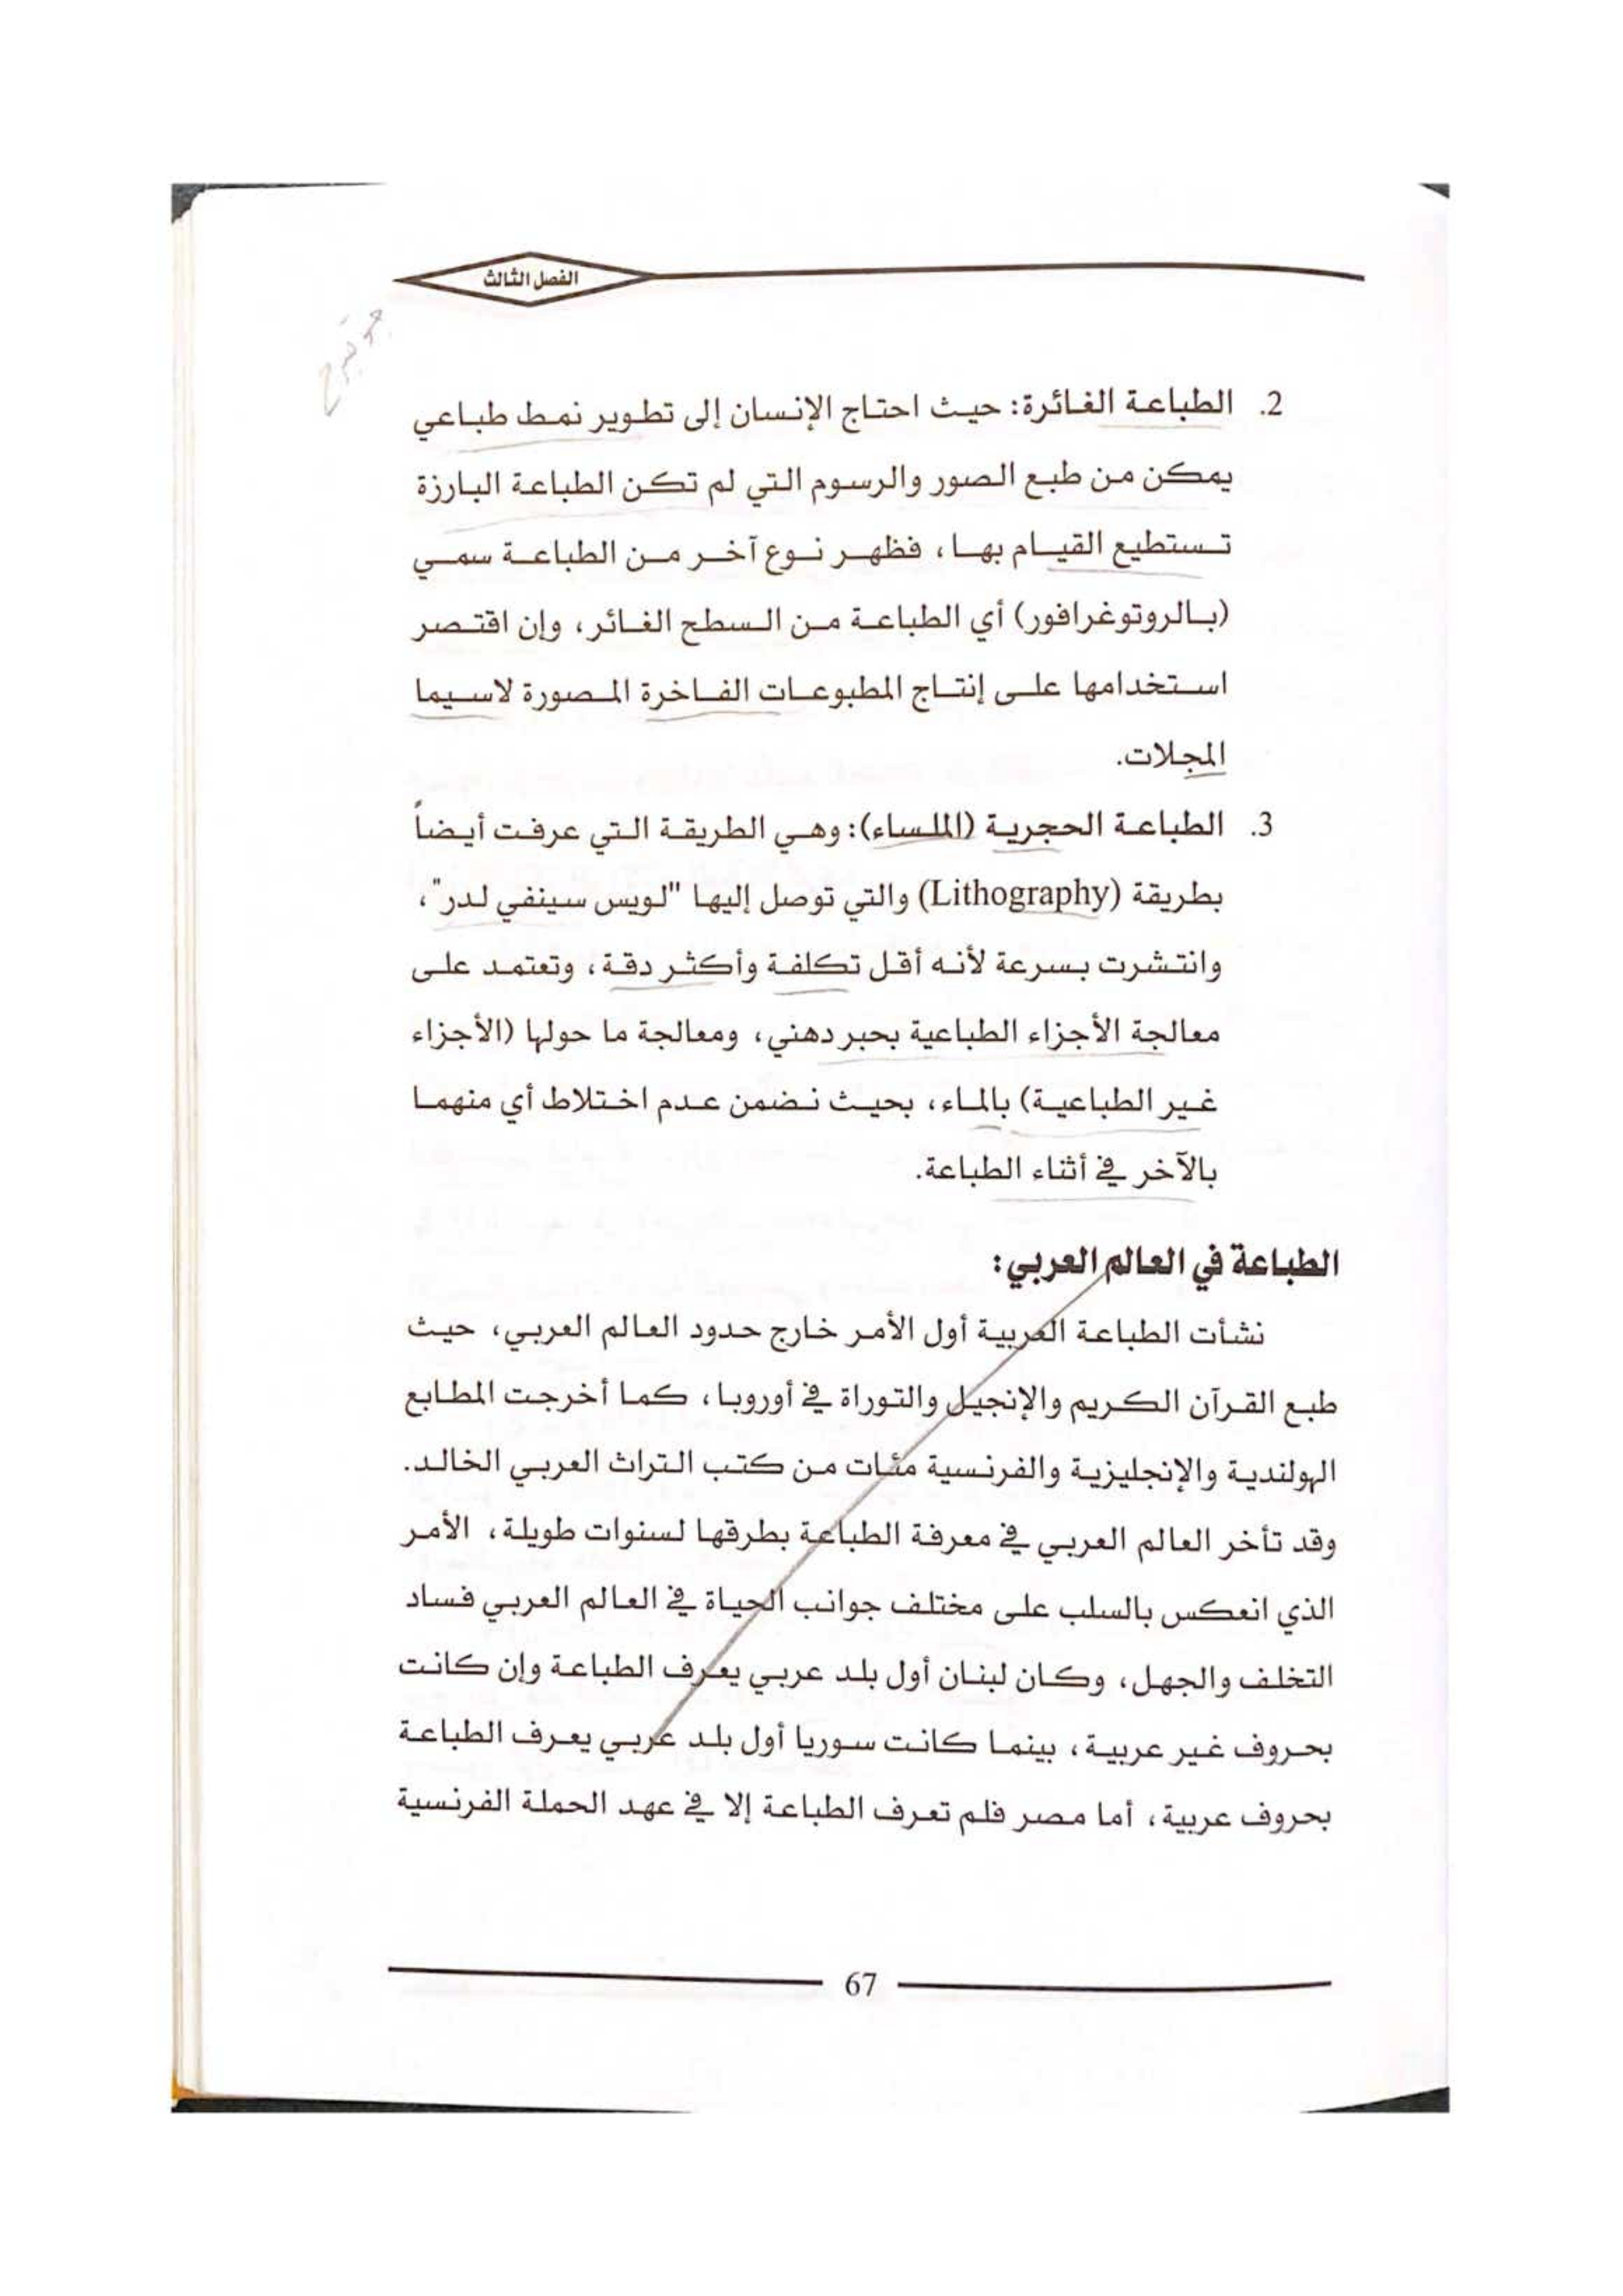 الفصل الثالث
2. الطباعة الغائرة: حيث احتاج الإنسان إلى تطوير نمط طباعي
يمكن من طبع الصور والرسوم التي لم تكن الطباعة البارزة
تستطيع القيام بها، فظهر نوع آخر من الطباعة سمي
(بالروتوغرافور) أي الطباعة من السطح الغائر، وإن اقتصر
استخدامها على إنتاج المطبوعات الفاخرة المصورة لاسيما
المجلات.
3. الطباعة الحجرية (الملساء): وهي الطريقة التي عرفت أيضاً
بطريقة (Lithography) والتي توصل إليها "لويس سينفي لدر"،
وانتشرت بسرعة لأنه أقل تكلفة وأكثر دقة، وتعتمد على
معالجة الأجزاء الطباعية بحبر دهني، ومعالجة ما حولها (الأجزاء
غير الطباعية) بالماء، بحيث نضمن عدم اختلاط أي منهما
بالآخر في أثناء الطباعة.
الطباعة في العالم العربي:
نشأت الطباعة العربية أول الأمر خارج حدود العالم العربي، حيث
طبع القرآن الكريم والإنجيل والتوراة في أوروبا، كما أخرجت المطابع
الهولندية والإنجليزية والفرنسية مئات من كتب التراث العربي الخالد.
وقد تأخر العالم العربي في معرفة الطباعة بطرقها لسنوات طويلة، الأمر
الذي انعكس بالسلب على مختلف جوانب الحياة في العالم العربي فساد
التخلف والجهل، وكان لبنان أول بلد عربي يعرف الطباعة وإن كانت
بحروف غير عربية، بينما كانت سوريا أول بلد عربي يعرف الطباعة
بحروف عربية، أما مصر فلم تعرف الطباعة إلا في عهد الحملة الفرنسية
67